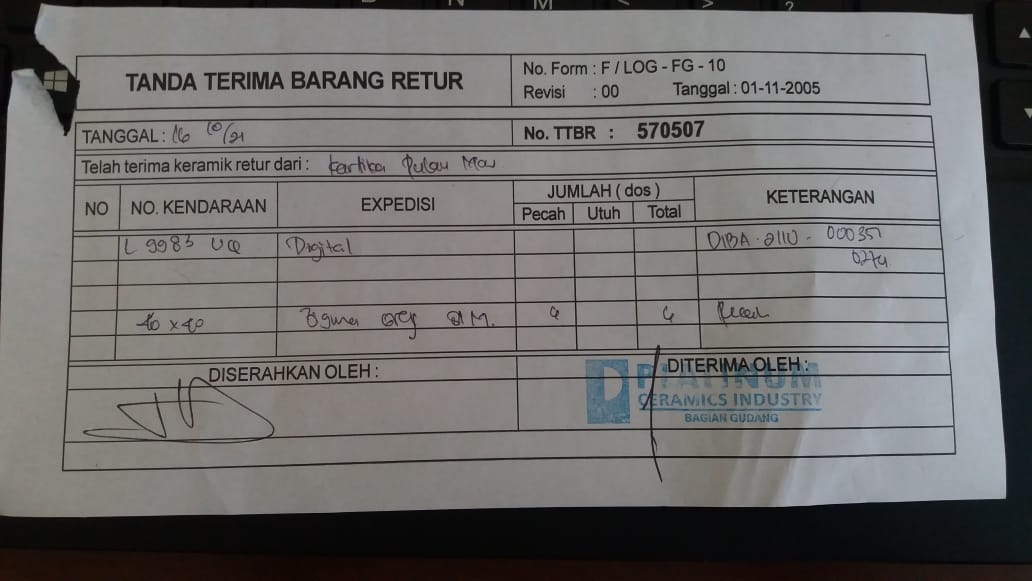 TANDA TERIMA BARANG RETUR
No. Form : F / LOG - FG - 10
Revisi : 00 Tanggal : 01-11-2005
TANGGAL : 16 10/21
No. TTBR : 570507
Telah terima keramik retur dari : Kartika Pulau Mas
NO NO. KENDARAAN EXPEDISI JUMLAH ( dos ) KETERANGAN
Pecah Utuh Total
L 9983 UQ Digital DIBA . 2110 - 000351
0274
40 x 40 grey 4 4 Pecah
DISERAHKAN OLEH : DITERIMA OLEH :
PLATINUM
CERAMICS INDUSTRY
BAGIAN GUDANG